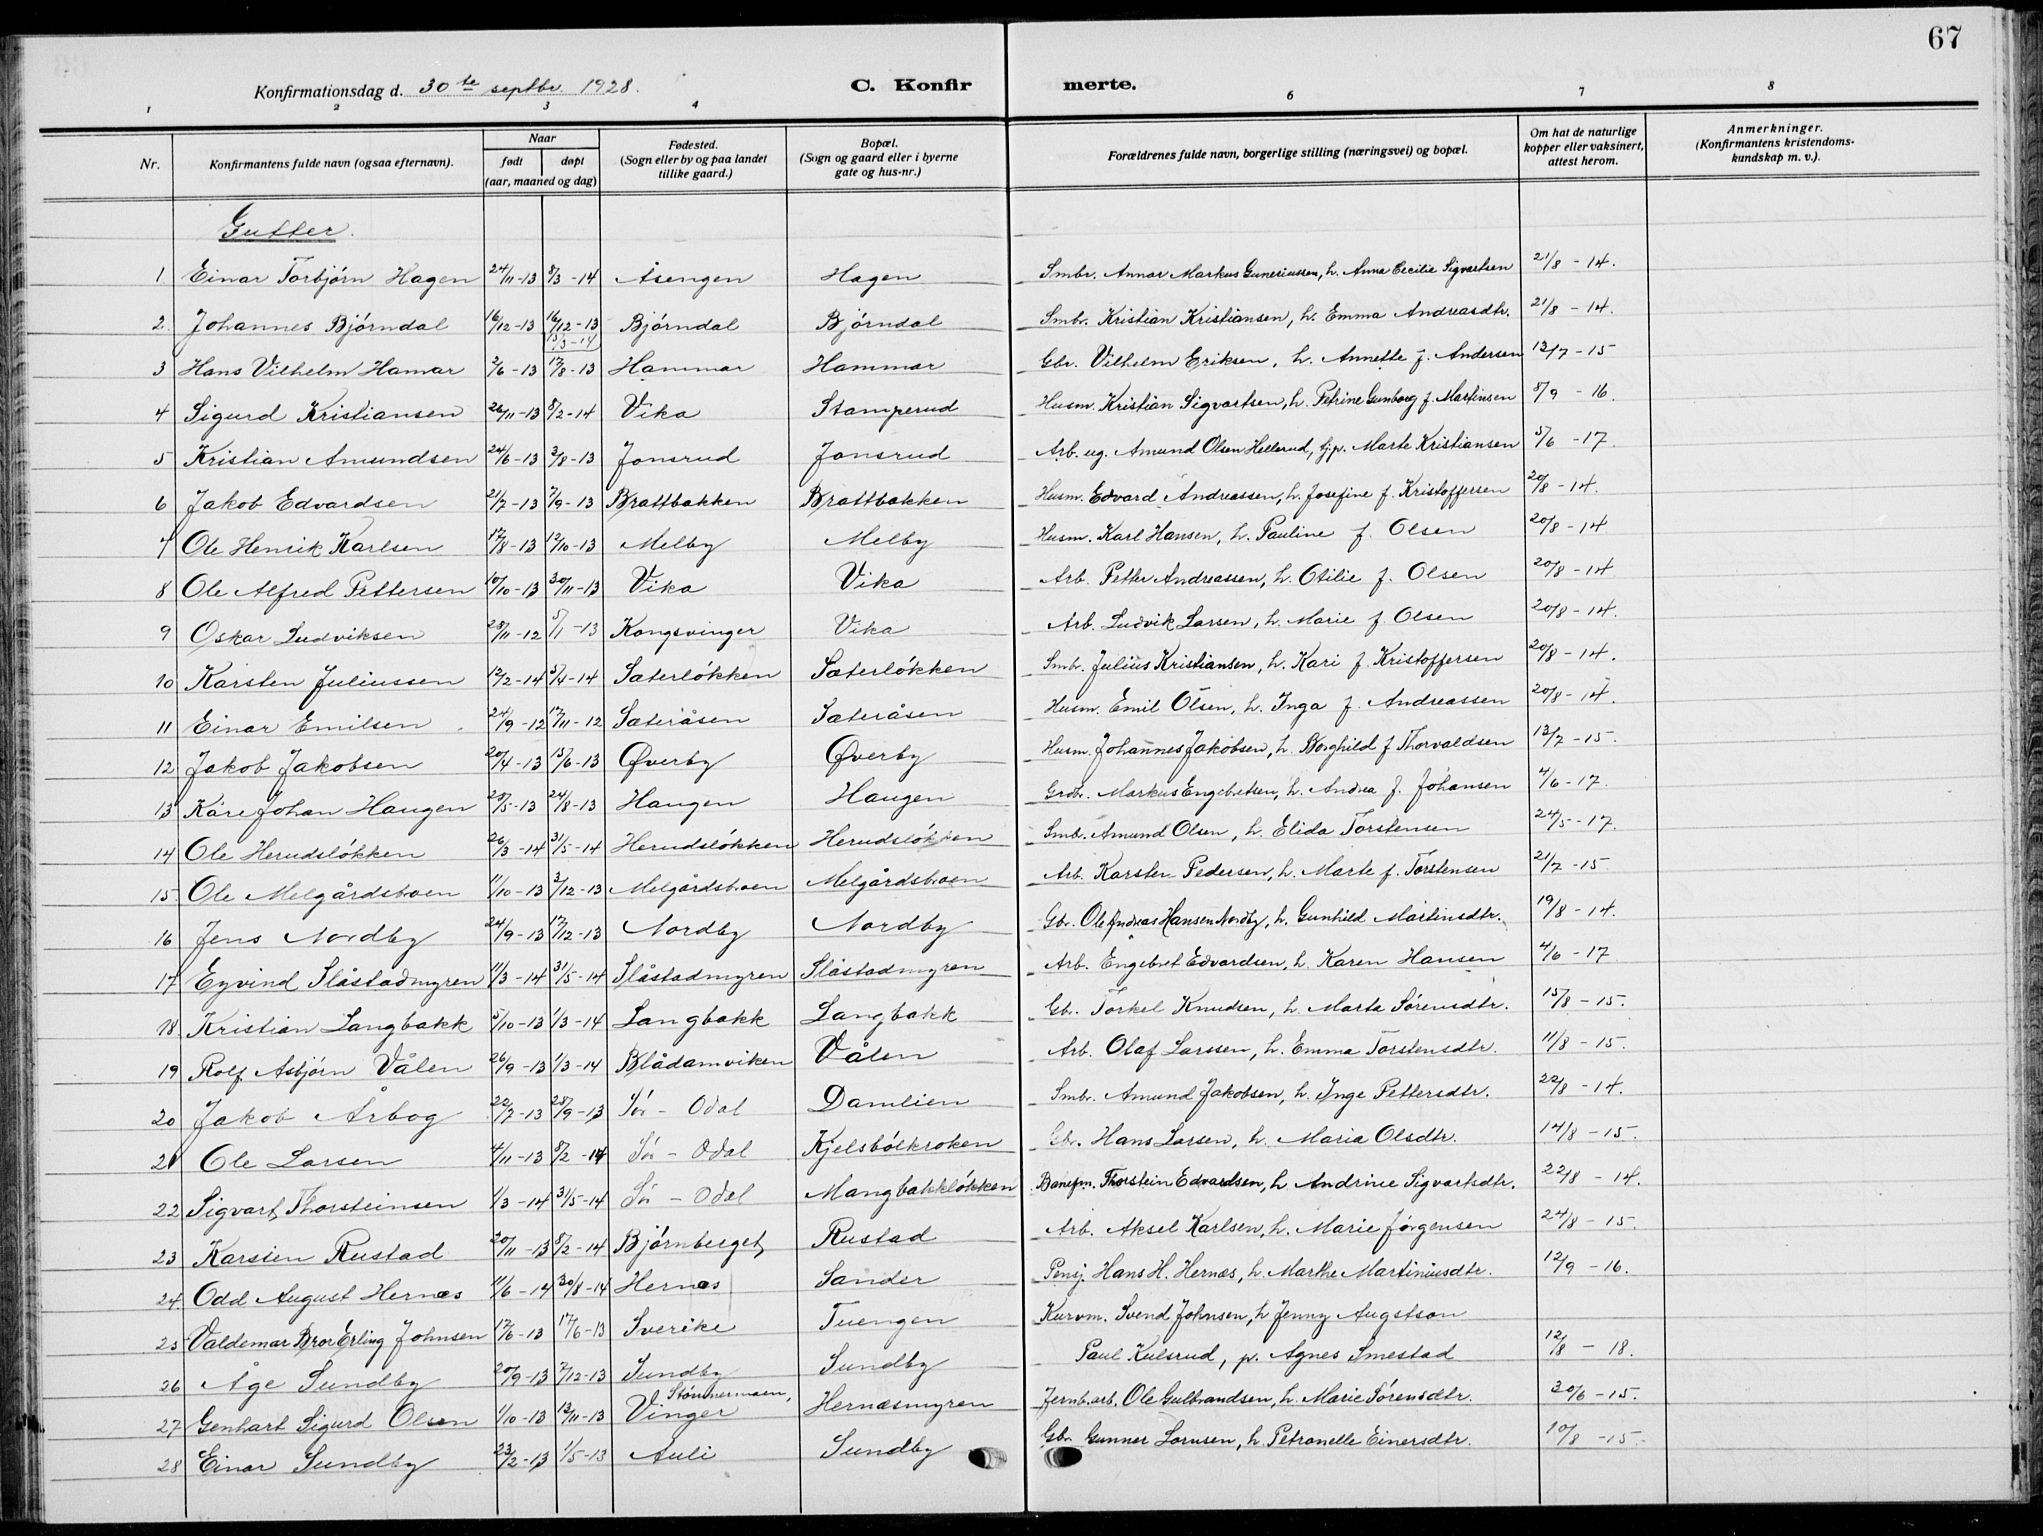 67
Konfirmationsdag d. 30te septbr. 1928.
C. Konfir merte.
1 2 3 4 6 7 8
Nr. | Konfirmantens fulde navn (ogsaa efternavn). | Naar født døpt (aar, maaned og dag) | Fødested. (Sogn eller by og paa landet tillike gaard.) | Bopæl. (Sogn og gaard eller i byerne gate og hus-nr.) | Forældrenes fulde navn, borgerlige stilling (næringsvei) og bopæl. | Om hat de naturlige kopper eller vaksinert, attest herom. | Anmerkninger. (Konfirmantens kristendomskundskap m. v.).
Gutter.
1 Einar Torbjørn Hagen 24/11-13 8/3-14 Åsengen Hagen Smbr. Annar Markus Guneriussen, h. Anna Cecilie Sigvartsen 21/8-14.
2. Johannes Bjørndal 16/12-13 16/12-13 15/3-14 Bjørndal Bjørndal Smbr. Kristian Kristiansen, h. Emma Andreasdtr. 21/8-14.
3 Hans Vilhelm Hamar 2/6-13 17/8-13 Hammar Hammar Gbr. Vilhelm Eriksen, h. Annette f. Andersen 13/7-15
4 Sigurd Kristiansen 26/11-13 8/2-14 Vika Stamperud Husm. Kristian Sigvartsen, h. Petrine Gunborg f. Martinsen 8/9-16.
5 Kristian Amundsen 24/6-13 3/8-13 Jonsrud Jonsrud Arb. ug. Amund Olsen Hellerud, Gp. Marte Kristiansen 5/6-17.
6 Jakob Edvardsen 21/7-13 7/9-13 Brattbakken Brattbakken Husm. Edvard Andreassen, h. Josefine f. Kristoffersen 20/8-14.
7 Ole Henrik Karlsen 17/8-13 12/10-13 Melby Melby Husm. Karl Hansen, h. Pauline f. Olsen 20/8-14
8 Ole Alfred Pettersen 10/10-13 30/11-13 Vika Vika Arb. Petter Andreassen, h. Otilie f. Olsen 20/8-14
9 Oskar Ludviksen 28/11-12 5/1-13 Kongsvinger Vika Arb. Ludvik Larsen, h. Marie f Olsen 20/8-14.
10 Karsten Juliussen 12/2-14 5/4-14 Sæterløkken Sæterløkken Smbr. Julius Kristiansen, h. Kari f. Kristoffersen 20/8-14.
11 Einar Emilsen 24/9-12 17/11-12 Sæteråsen Sæteråsen Husm. Emil Olsen, h. Inga f. Andreassen 20/8-14.
12 Jakob Jakobsen 20/4-13 15/6-13 Øverby Øverby Husm. Johannes Jakobsen, h. Borghild f Thorvaldsen 13/7-15.
13 Kåre Johan Haugen 28/5-13 24/8-13 Haugen Haugen Grdbr. Markus Engebretsen, h. Andrea f. Johansen 4/6-17.
14 Ole Herudsløkken 26/3-14 31/5-14 Herudsløkken Herudsløkken Smb. Amund Olsen, h. Elida Torstensen 24/5-17.
15. Ole Melgårdsboen 11/10-13 3/12-13 Melgårdsboen Melgårdsboen Arb. Karsten Pedersen, h. Marte f. Torstensen 21/7-15
16 Jens Nordby 24/9-13 17/12-13 Nordby Nordby Gbr. Ole Andreas Hansen Nordby, h. Gunhild Martinsdtr. 19/8-14.
17 Eyvind Slåstadmyren 11/3-14 31/5-14 Slåstadmyren Slåstadmyren Arb. Engebret Edvardsen, h. Karen Hansen 4/6-17
18 Kristian Langbakk 5/10-13 1/3-14 Langbakk Langbakk Gb. Torkel Knudsen, h. Marta Sørensdtr. 15/8-15.
19 Rolf Asbjørn Vålen 26/9-13 1/3-14 Blådamviken Vålen Arb. Olaf Larssen, h. Emma Torstensdtr. 11/8-15.
20 Jakob Årbog 22/7-13 28/9-13 Sør-Odal Damlien Smbr. Amund Jakobsen, h. Inge Pettersdtr. 22/8-14.
21 Ole Larsen 4/11-13 8/2-14 Sør-Odal Kjelsbølkroken Gb. Hans Larsen, h. Maria Olsdtr. 14/8-15.
22 Sigvart Thorsteinsen 1/3-14 31/5-14 Sør-Odal Mangbakkløkken Banefm. Thorstein Edvardsen, h Andrine Sigvartsdtr. 22/8-14.
23 Karsten Rustad 20/11-13 8/2-14 Bjørnberget Rustad Arb. Aksel Karlsen, h. Marie Jørgensen 24/8-15.
24 Odd August Hernæs 11/6-14 30/8-14 Hernæs Sander Pensj. Hans H. Hernæs, h. Marthe Martiniusdtr. 12/9-16.
25 Valdemar Bror Erling Johnsen 17/6-13 17/6-13 Sverike Tuengen Kurvm. Svend Johnsen, h Jenny Augstson
26 Åge Sundby 20/9-13 7/12-13 Sundby Sundby Paul Kulsrud, p. Agnes Smestad 12/8-18.
27 Genhart Sigurd Olsen 1/10-13 13/11-13 Vinger Hernæsmyren Jernb.arb. Ole Gulbrandsen, h. Marie Sørensdtr. 30/6-15.
28 Einar Sundby 23/2-13 1/5-13 Auli Sundby Gb. Gunner Larnsen, h. Petronelle Einersdtr. 10/8-15.